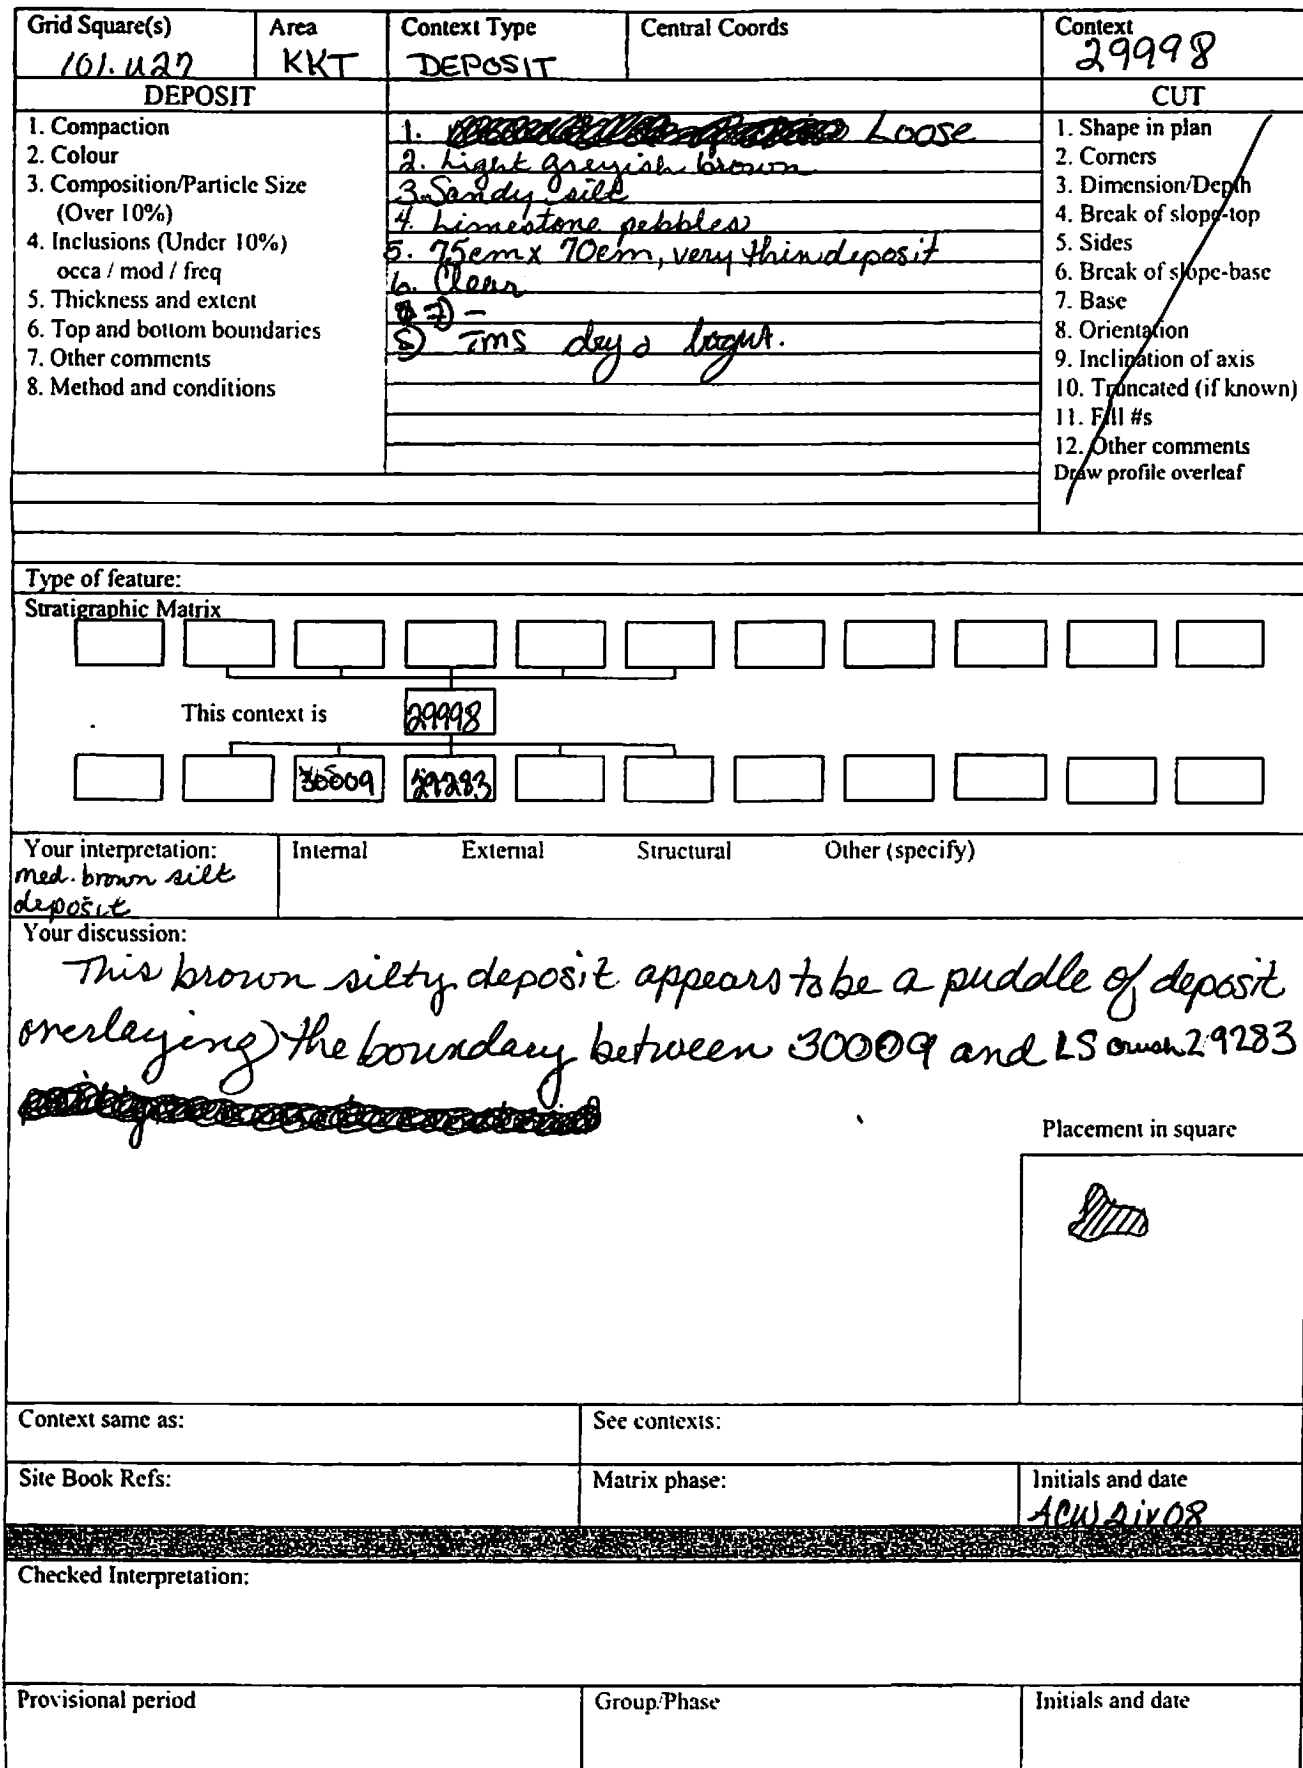 Grid Square(s) Area Context Type Central Coords Context
101.U27 KKT DEPOSIT 29998
DEPOSIT CUT
1. Compaction
2. Colour
3. Composition/Particle Size
(Over 10%)
4. Inclusions (Under 10%)
occa / mod / freq
5. Thickness and extent
6. Top and bottom boundaries
7. Other comments
8. Method and conditions
1. Loose
2. Light greyish brown
3. Sandy silt
4. Limestone pebbles
5. 75cm x 70cm, very thin deposit
6. Clear
7) -
8) TMS dry &
1. Shape in plan
2. Corners
3. Dimension/Depth
4. Break of slope-top
5. Sides
6. Break of slope-base
7. Base
8. Orientation
9. Inclination of axis
10. Truncated (if known)
11. Fill #s
12. Other comments
Draw profile overleaf
Type of feature:
Stratigraphic Matrix
This context is 29998
30009 29283
Your interpretation: Internal External Structural Other (specify)
med. brown silt
deposit
Your discussion:
This brown silty deposit appears to be a puddle of deposit
overlaying the boundary between 30009 and LS crush 29283
Placement in square
Context same as: See contexts:
Site Book Refs: Matrix phase: Initials and date
ACW 2iv08
Checked Interpretation:
Provisional period Group/Phase Initials and date